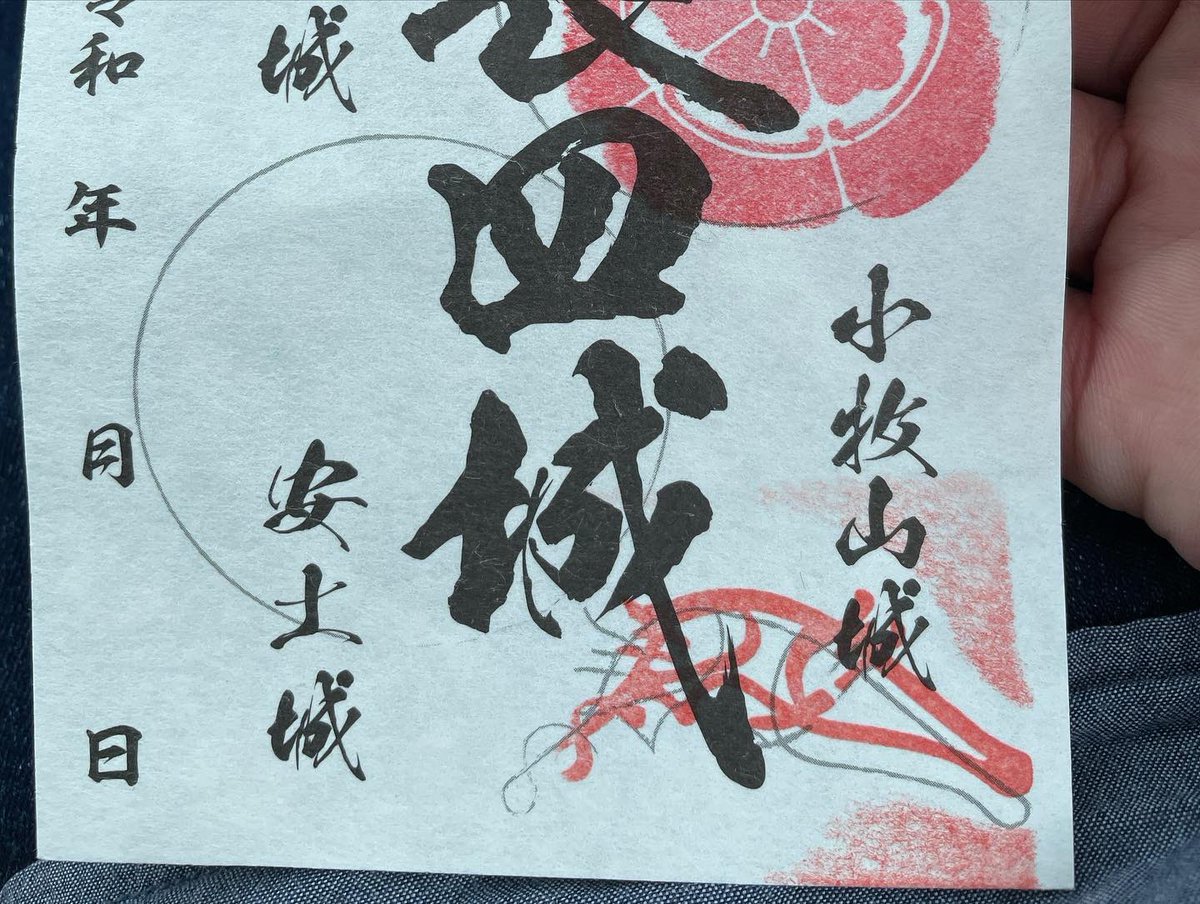 小牧山城
四城
城
安土城
令和 年 月 日